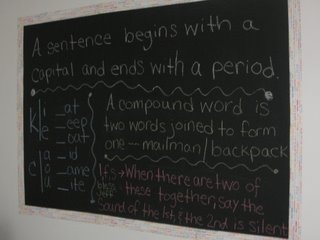 A sentence begins with a
capital and ends with a period.
K
i _at
e _eep
_oat
C
a _id
o _ame
u _ite
A compound word is
two words joined to form
one --- mailman/backpack
l, f, s → When there are two of
these together, say the
Sound of the 1st, & the 2nd is silent